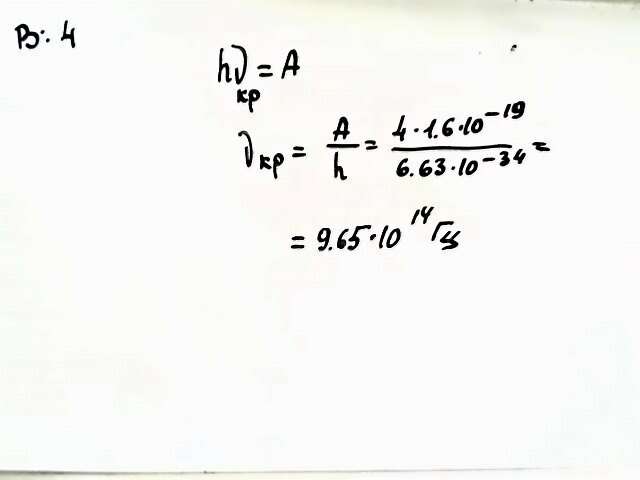 В: 4
hν кр = A
ν кр = A / h = 4 · 1.6 · 10⁻¹⁹ / 6.63 · 10⁻³⁴ =
= 9.65 · 10¹⁴ Гц